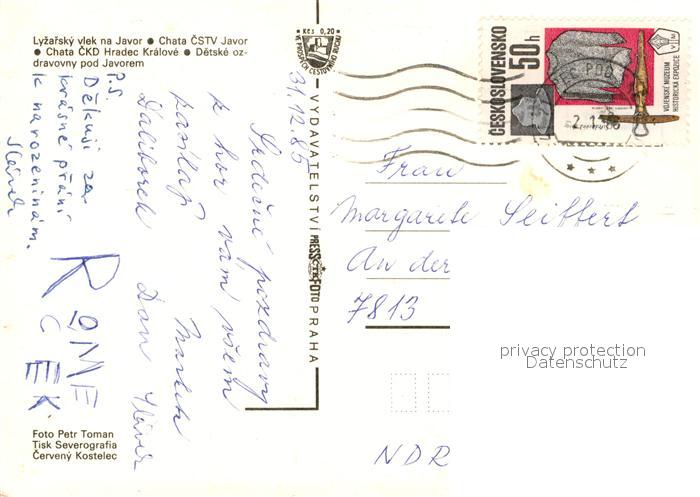 Lyžařský vlek na Javor ● Chata ČSTV Javor
● Chata ČKD Hradec Králové ● Dětské oz-
dravovny pod Javorem
Kčs 0,20
VE PROSPĚCH CESTOVNÍHO RUCHU
31.12.85
Srdečné pozdravy
z hor vám všem
posílají Mareček
Daliborek Dan Slávek
P.S.
Děkuji za
krásné přání
k narozeninám.
Slávek
ROMEČEK
VYDAVATELSTVÍ PRESSFOTO PRAHA
ČESKOSLOVENSKO
50h
VOJENSKÉ MUZEUM
HISTORICKÁ EXPOZICE
Frau
Margarete Seiffert
An der
7813
NDR
privacy protection
Datenschutz
Foto Petr Toman
Tisk Severografia
Červený Kostelec